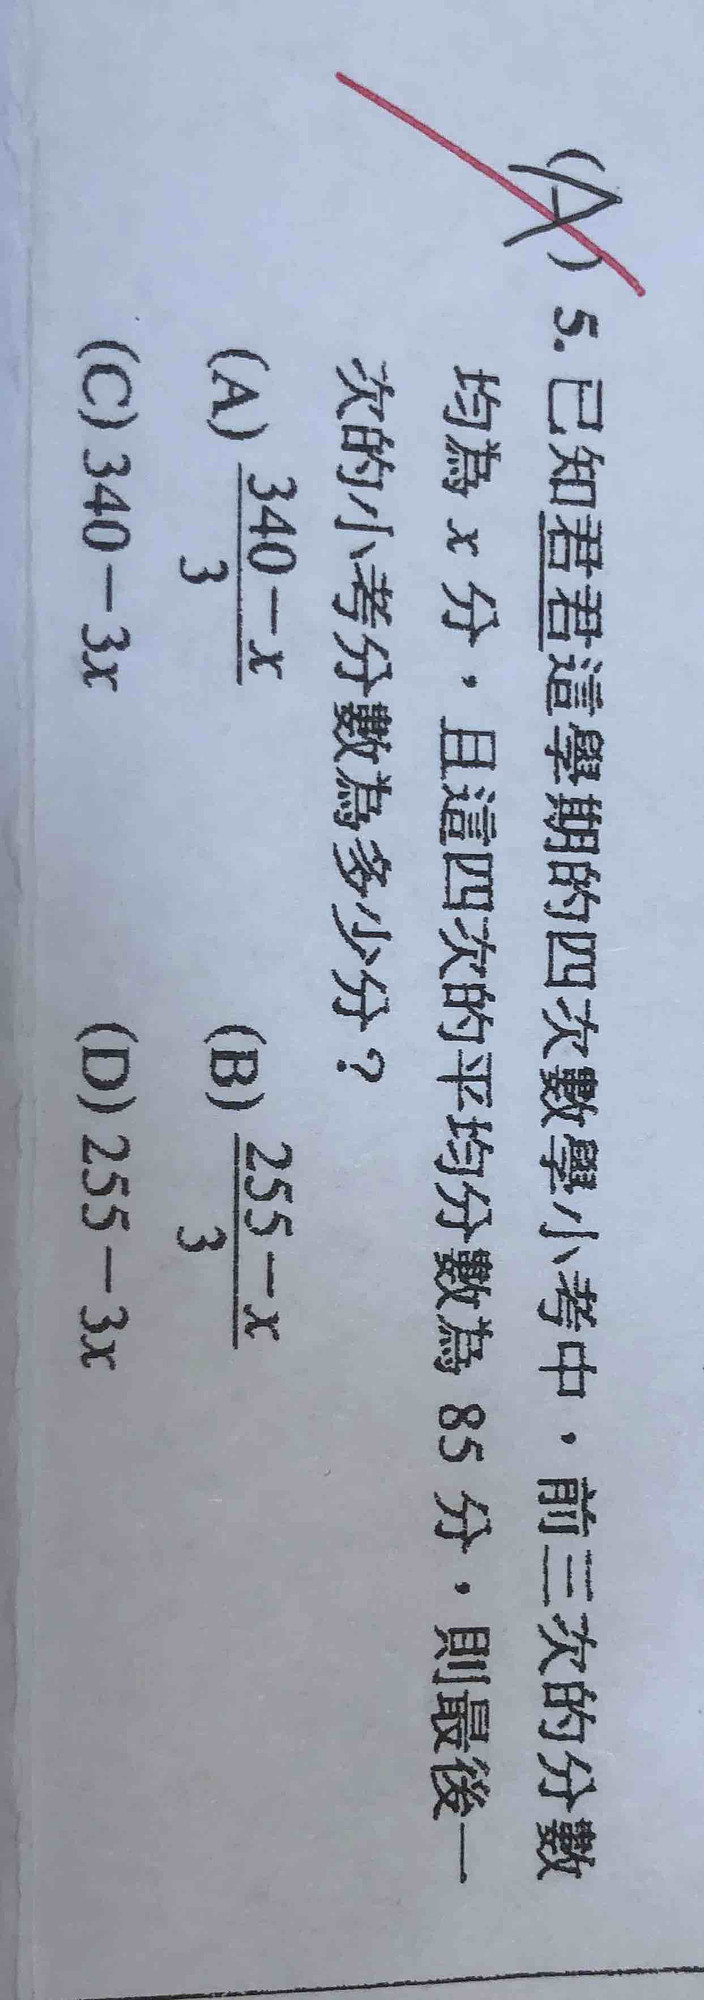 (A) 5. 已知君君這學期的四次數學小考中，前三次的分數
均為 x 分，且這四次的平均分數為 85 分，則最後一
次的小考分數為多少分？
(A) \frac{340-x}{3} (B) \frac{255-x}{3}
(C) 340－3x (D) 255－3x